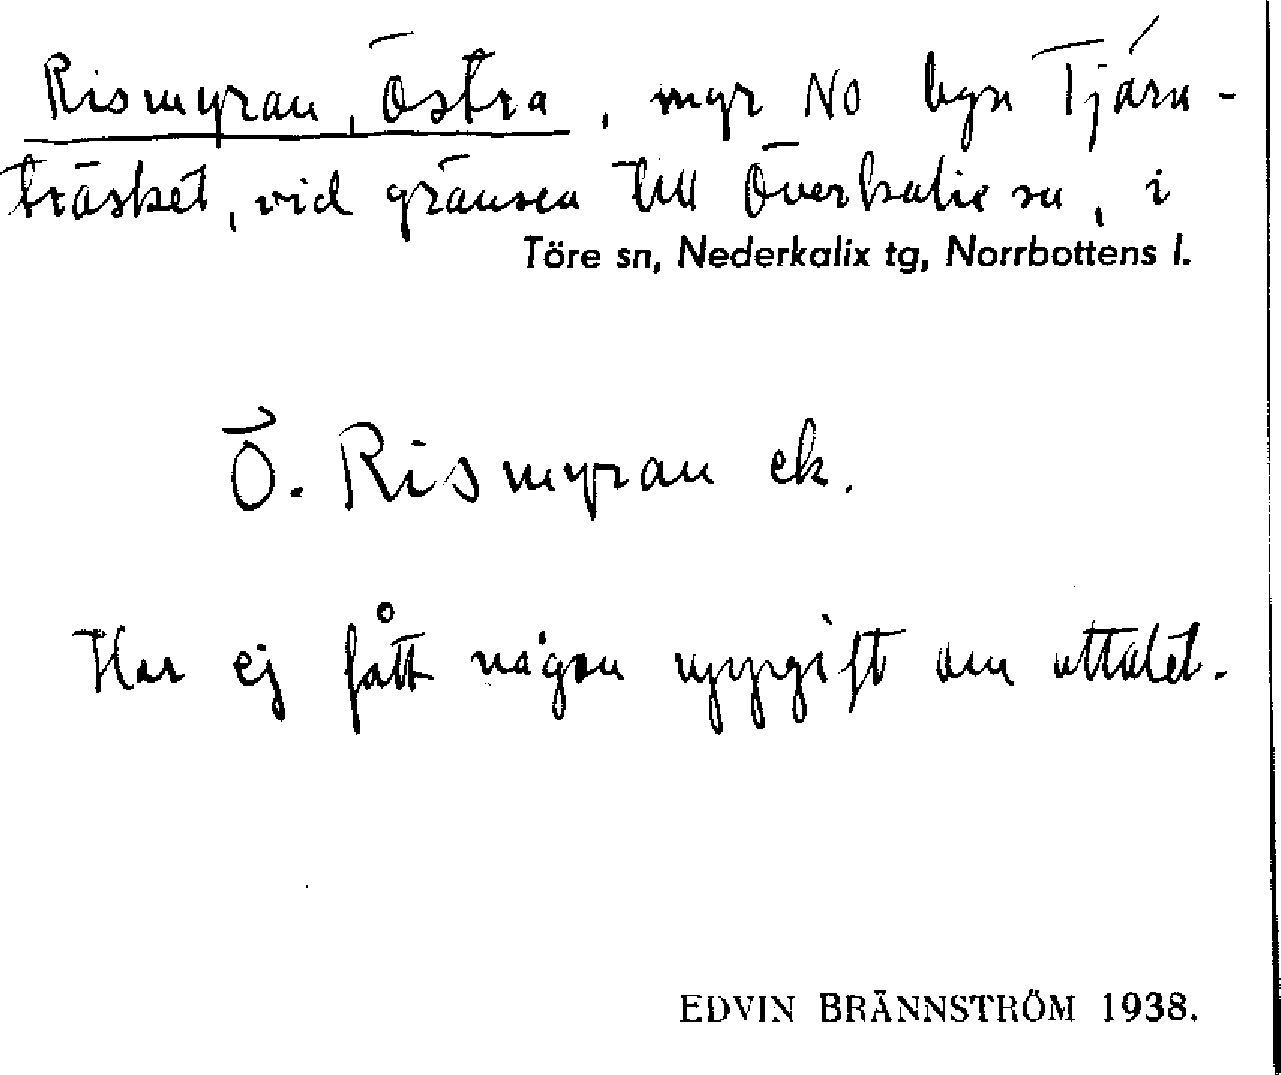 Rismyran, Östra, myr NO byn Tjärn-
träsket, vid gränsen till Överkalix sn, i
Töre sn, Nederkalix tg, Norrbottens l.
Ö. Rismyran ek.
Har ej fått någon uppgift om uttalet.
EDVIN BRÄNNSTRÖM 1938.